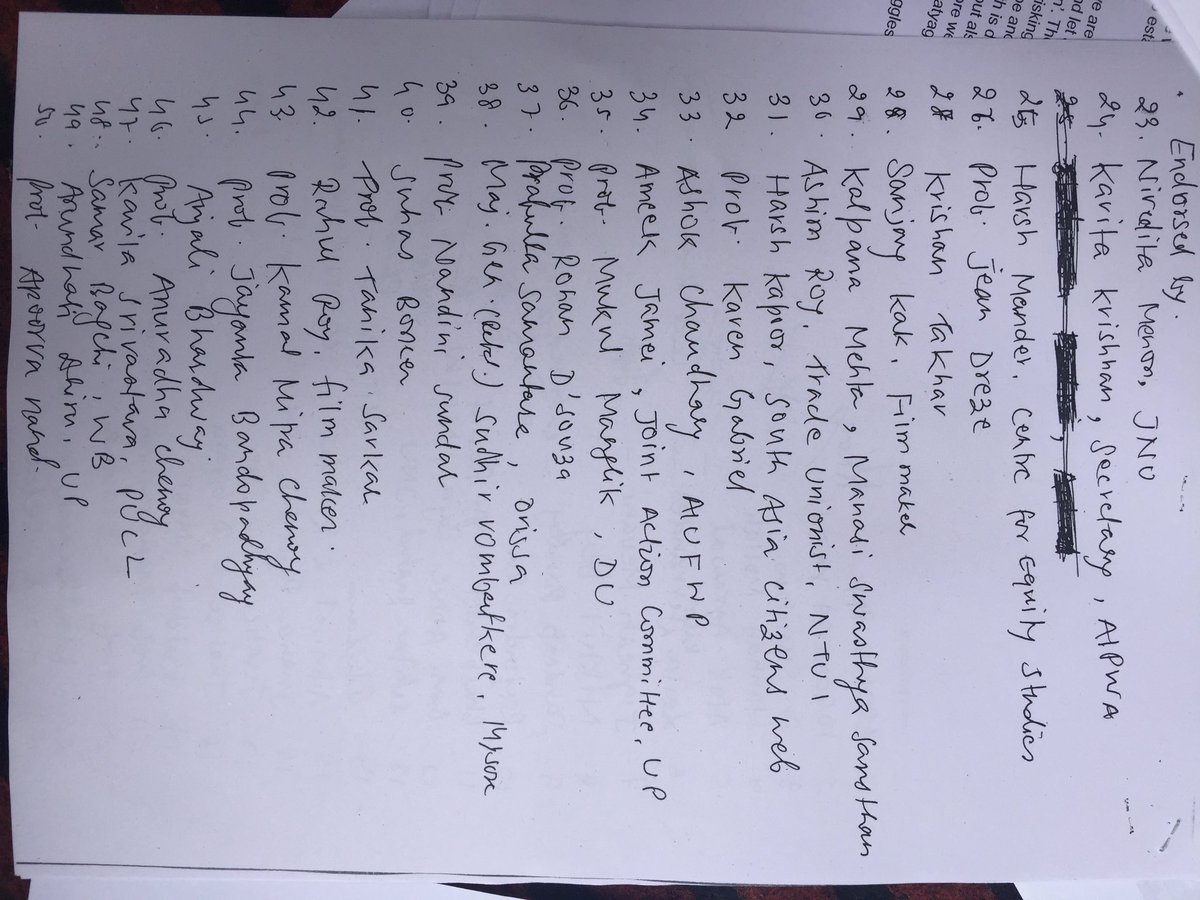 Endorsed by.
23. Nivedita Menon, JNU
24. Kavita Krishnan, Secretary, AIPWA
25 Harsh Mander, Centre for Equity Studies
26. Prof. Jean Dreze
27 Krishan Takhar
28. Sanjay Kak, Filmmaker
29. Kalpana Mehta, Manasi Swasthya Sansthan
30 Ashim Roy, Trade Unionist, NTUI
31. Harsh Kapoor, South Asia Citizens Web
32 Prof. Karen Gabriel
33 Ashok Chaudhary, AIUFWP
34. Ameek Jamei, Joint Action Committee, UP
35. Prof. Mukul Manglik, DU
36. Prof. Rohan D'souza
37. Prafulla Samantara, Orissa
38. Maj. Gen. (Retd.) Sudhir Vombatkere, Mysore
39 Prof. Nandini Sundar
40. Suhas Borker
41. Prof. Tanika Sarkar
42. Rahul Roy, film maker.
43. Prof. Kamal Mitra Chenoy
44. Prof. Jayanta Bandopadhyay
45. Anjali Bhardwaj
46. Prof. Anuradha Chenoy
47. Kavita Srivastava, PUCL
48. Samar Bagchi, WB
49. Arundhati Dhuru, UP
50. Prof. Apoorva nand.
re are
nd let
risking
e and
h is d
out als
ore we
atyag
ggles
esta